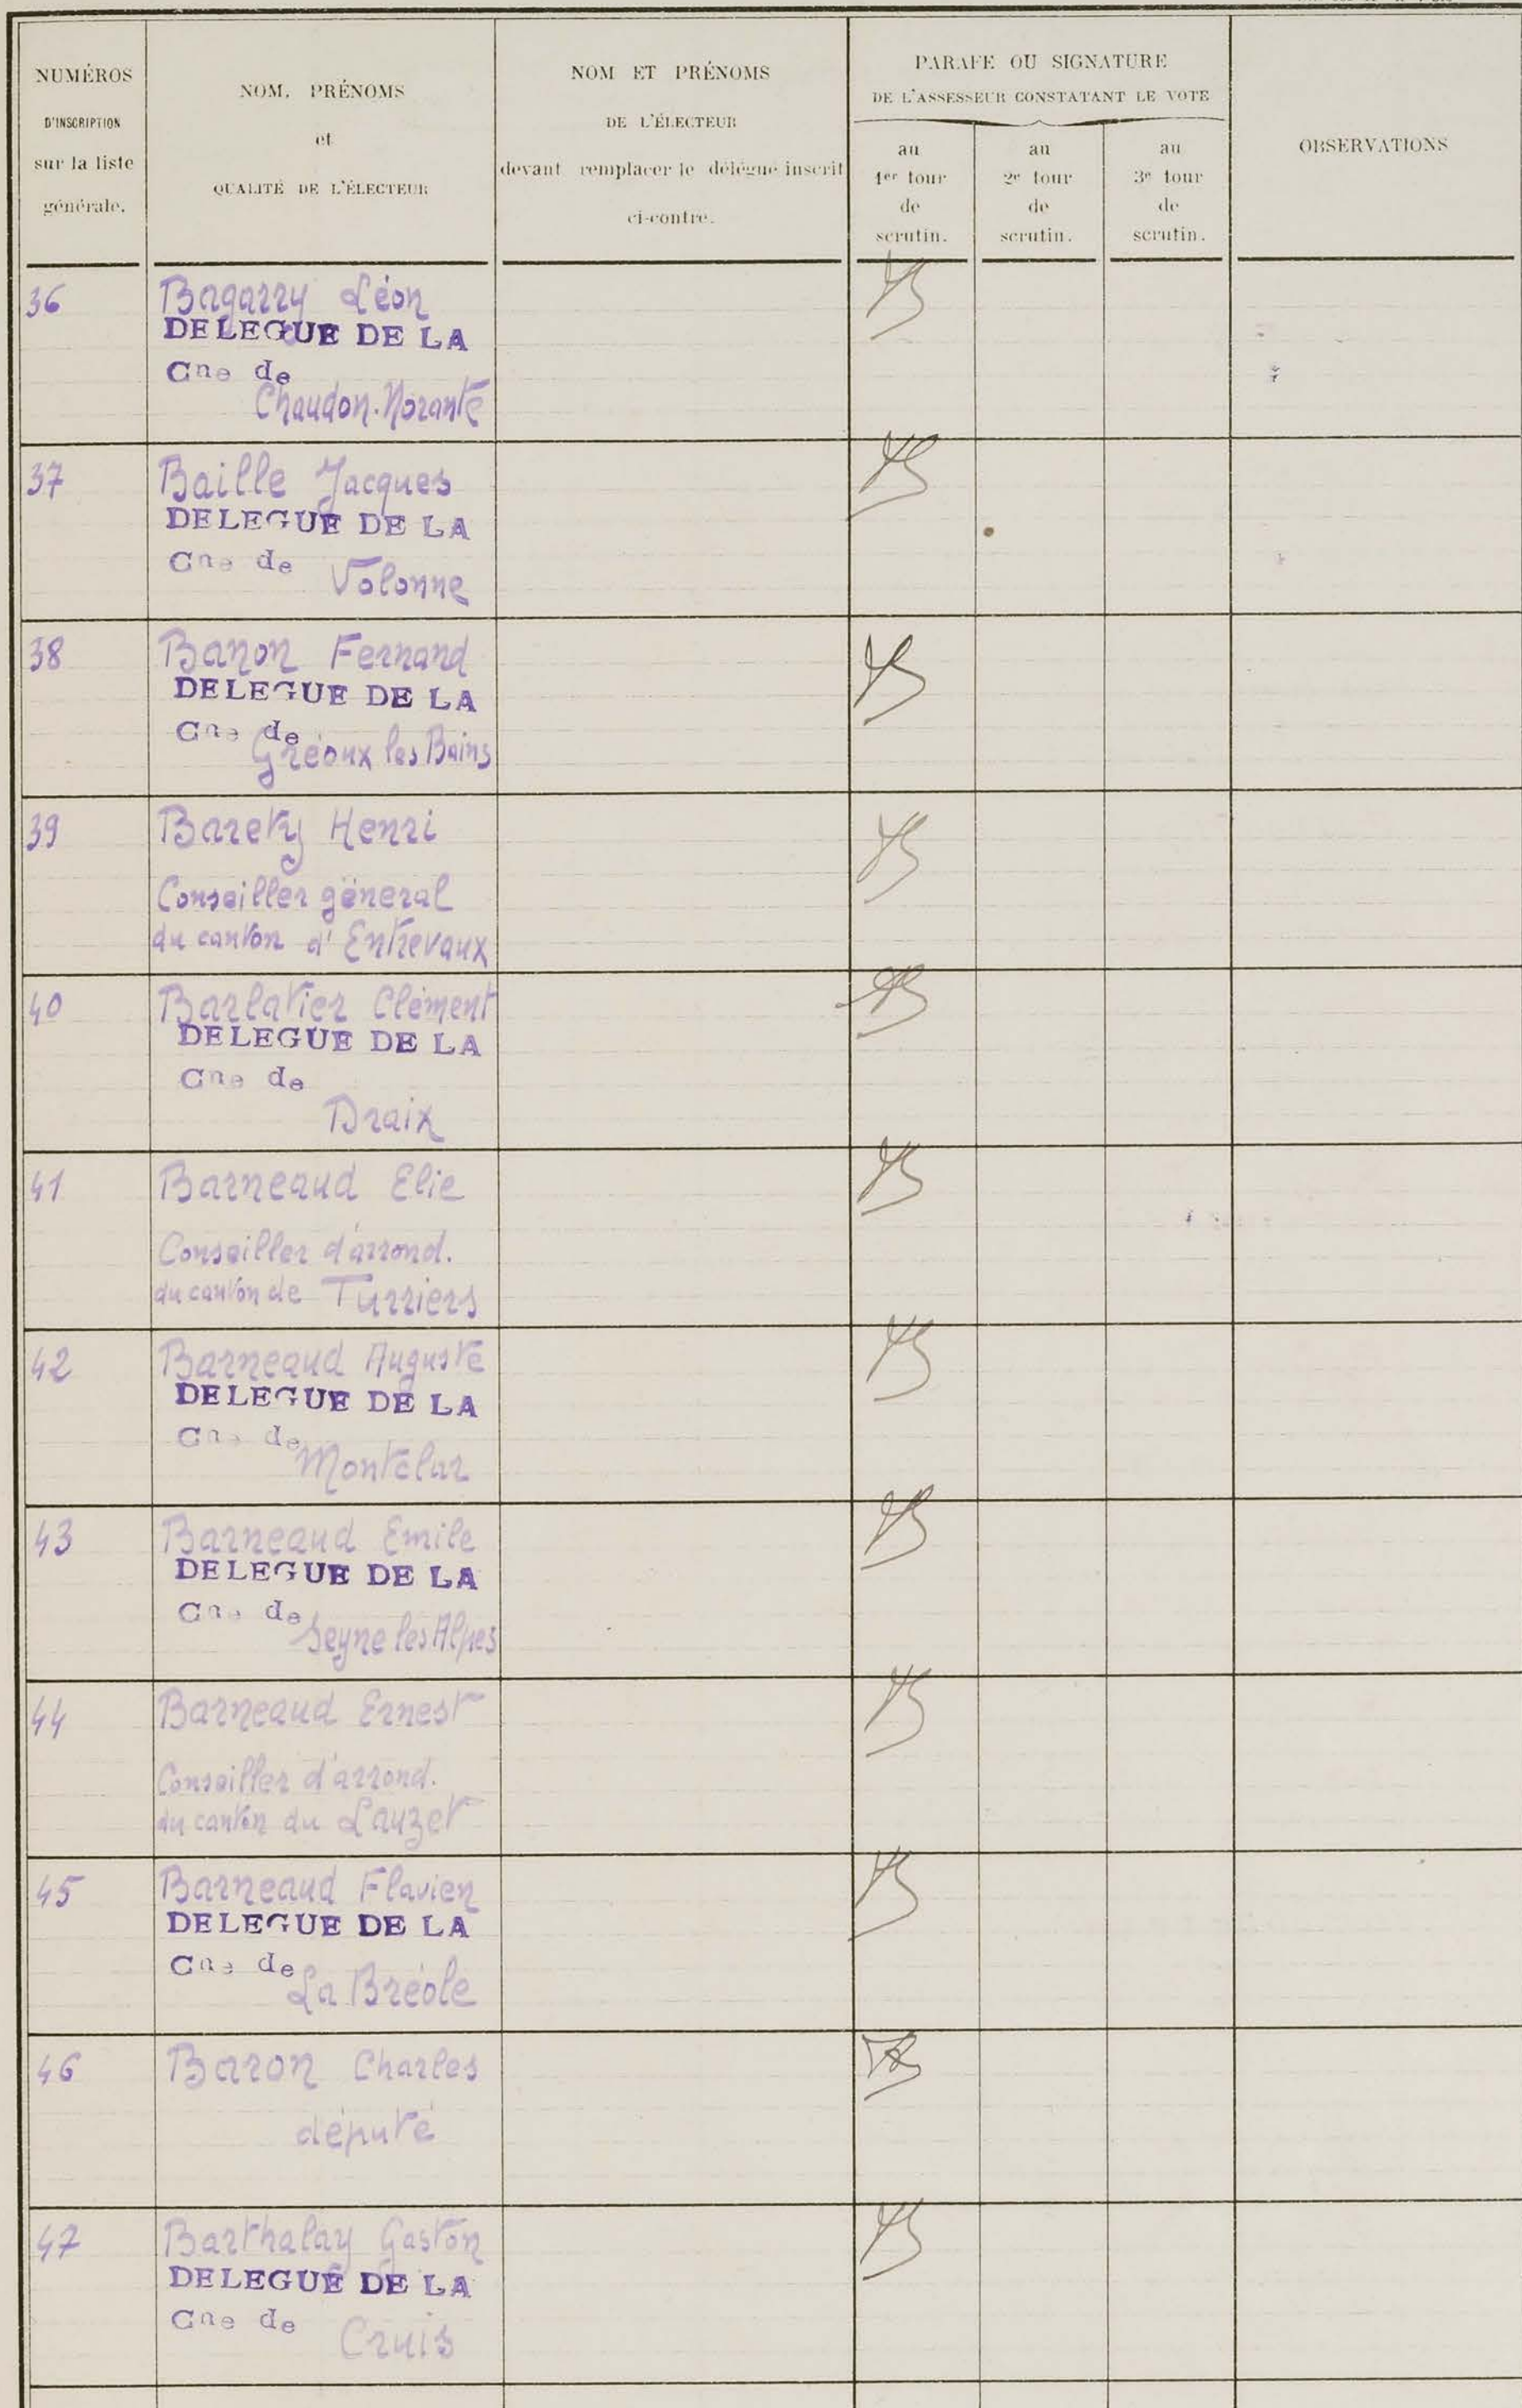 NUMÉROS
D'INSCRIPTION
sur la liste
générale.
NOM, PRÉNOMS
et
QUALITÉ DE L'ÉLECTEUR
NOM ET PRÉNOMS
DE L'ÉLECTEUR
devant remplacer le délégué inscrit
ci-contre.
PARAFE OU SIGNATURE
DE L'ASSESSEUR CONSTATANT LE VOTE
au
1er tour
de
scrutin.
au
2e tour
de
scrutin.
au
3e tour
de
scrutin.
OBSERVATIONS
36
Bagarry Léon
DELEGUE DE LA
Cne de
Chaudon-Norante
37
Baille Jacques
DELEGUE DE LA
Cne de Volonne
38
Banon Fernand
DELEGUE DE LA
Cne de
Gréoux les Bains
39
Barety Henri
Conseiller général
du canton d'Entrevaux
40
Barlatier Clément
DELEGUE DE LA
Cne de
Draix
41
Barneaud Elie
Conseiller d'arrond.
du canton de Turriers
42
Barneaud Auguste
DELEGUE DE LA
Cne de
Montclar
43
Barneaud Emile
DELEGUE DE LA
Cne de
Seyne les Alpes
44
Barneaud Ernest
Conseiller d'arrond.
du canton du Lauzet
45
Barneaud Flavien
DELEGUE DE LA
Cne de
La Bréole
46
Baron Charles
député
47
Barthalay Gaston
DELEGUE DE LA
Cne de Cruis